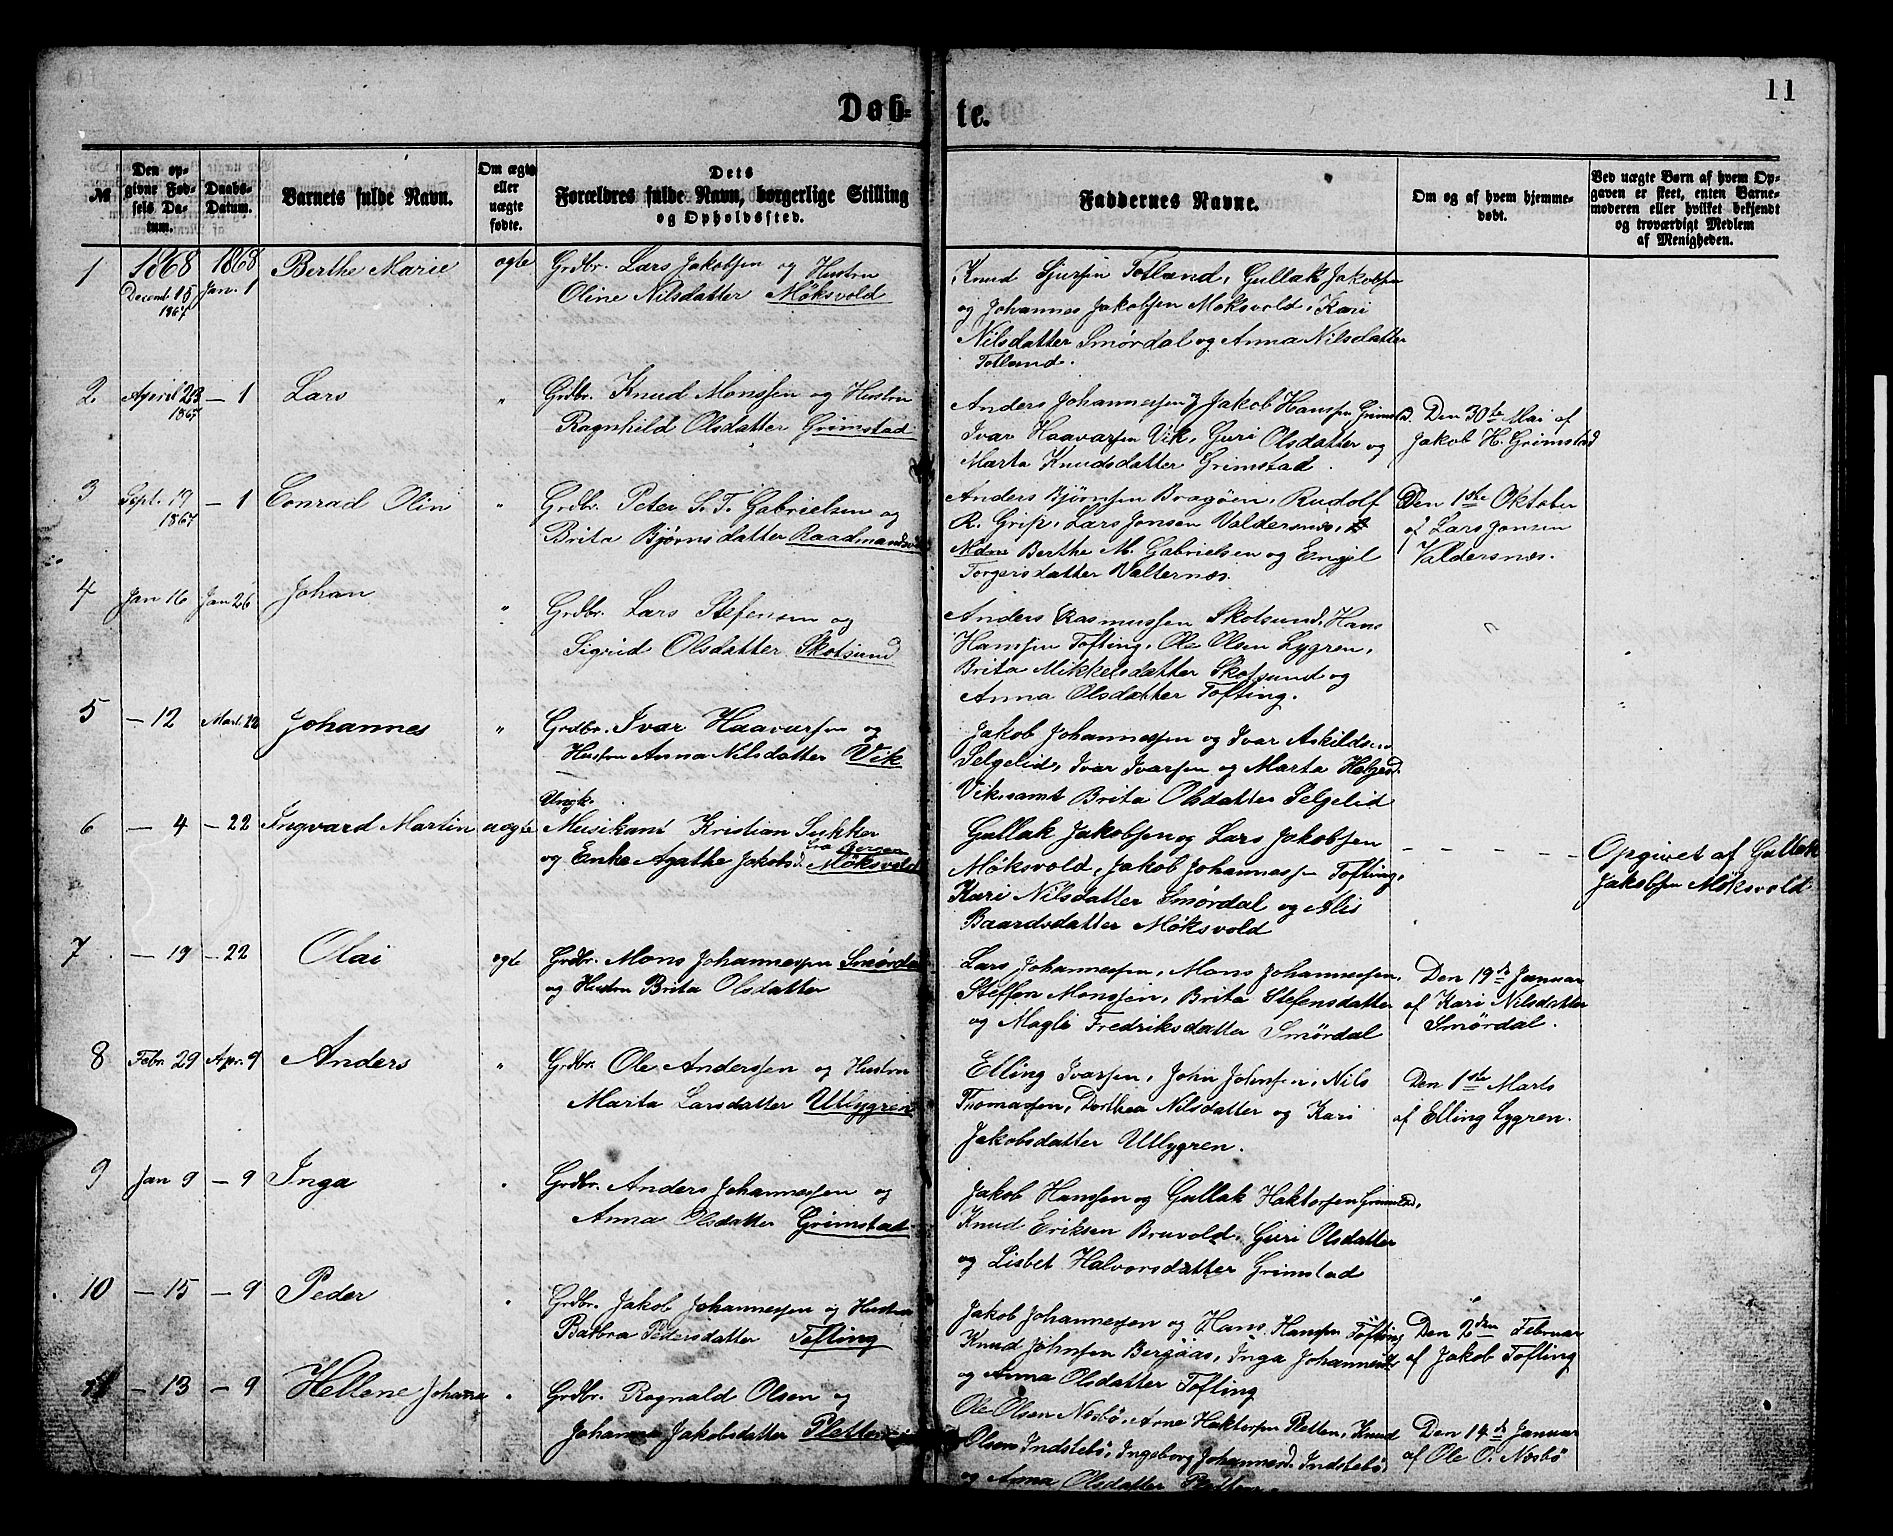 11
Døb-
te.
№
Den op-
givne Fød-
sels Da-
tum.
Daabs-
Datum.
Barnets fulde Navn.
Om ægte
eller
uægte
fødte.
Dets
Forældres fulde Navn, borgerlige Stilling
og Opholdssted.
Faddernes Navne.
Om og af hvem hjemme-
døbt.
Ved uægte Børn af hvem Op-
gaven er skeet, enten Barne-
moderen eller hvilket bekjendt
og troværdigt Medlem
af Menigheden.
1868 1868
1 Decemb. 15 1867 Jan. 1 Berthe Marie ægte Grdbr. Lars Jakobsen og Hustru
Oline Nilsdatter Møksvold
Knud Sjursen Totland, Gullak Jakobsen
og Johannes Jakobsen Møksvold, Kari
Nilsdatter Smørdal og Anna Nilsdatter
Totland.
2 April 23 1867 — 1 Lars " Grdbr. Knud Monssen og Hustru
Ragnhild Olsdatter Grimstad
Anders Johannessen & Jakob Hanssen Grimstad
Ivar Haavarsen Vik, Guri Olsdatter og
Marta Knudsdatter Grimstad.
Den 30te Mai af
Jakob H. Grimstad
3 Sept. 19 1867 — 1 Conrad Olin " Grdbr. Peter S. T. Gabrielsen og
Brita Bjørnsdatter Raadmandsv
Anders Bjørnsen Bragøen, Rudolf
R. Grip, Lars Jonsen Valdersnes,
Mdm Berthe M. Gabrielsen og Engil
Torgersdatter Valternes.
Den 1ste Oktober
af Lars Jonsen
Valdersnæs.
4 Jan 16 Jan 26 Johan " Grdbr. Lars Stefensen og
Sigrid Olsdatter Skotsund
Anders Rasmussen Skotsund, Hans
Hanssen Tofting, Ole Olsen Lygren,
Brita Mikkelsdatter Skotsund og
Anna Olsdatter Tofting.
5 — 12 Mart. 22 Johannes " Grdbr. Ivar Haavarsen og
Hustru Anna Nilsdatter Vik
Jakob Johannessen og Ivar Askildsen
Selgelid, Ivar Ivarsen og Marta Helgesd.
Vik, samt Brita Olsdatter Selgelid
6 — 4 — 22 Ingvard Martin uægte Ungk.
Musikant Kristian Sukker
fra Bergen
og Enke Agathe Jakobsd. Møksvold
Gullak Jakobsen og Lars Jakobsen
Møksvold, Jakob Johannessen Tofting,
Kari Nilsdatter Smørdal og Alis
Baardsdatter Møksvold
— — — — —
Opgivet af Gullak
Jakobsen Møksvold
7 — 19 — 22 Olai ægte Grdbr. Mons Johannessen Smørdal
og Hustru Brita Olsdatter
Lars Johannessen, Mons Johannessen,
Steffen Monssen, Brita Stefensdatter
og Magli Fredriksdatter Smørdal
Den 19de Januar
af Kari Nilsdatter
Smørdal.
8 Febr. 29 Apr. 9 Anders " Grdbr. Ole Anderssen og Hustru
Marta Larsdatter Utlygren
Elling Ivarsen, John Johnsen, Nils
Thomassen, Dorthea Nilsdatter og Kari
Jakobsdatter Utlygren.
Den 1ste Marts
af Elling Lygren.
9 Jan 9 — 9 Inga " Grdbr. Anders Johannessen og
Anna Olsdatter Grimstad
Jakob Hanssen og Gullak Haktorsen Grimstad,
Knud Eriksen Bruvold, Guri Olsdatter
og Lisbet Halvorsdatter Grimstad
10 — 15 — 9 Peder " Grdbr. Jakob Johannessen og Hustru
Barbra Pedersdatter Tofting
Jakob Johannessen og Hans Hanssen Tofting
Knud Johnsen Bergaas, Inga Johannesd.
og Anna Olsdatter Tofting
Den 2den Februar
af Jakob Tofting
11 — 13 — 9 Hellene Johanne " Grdbr. Ragnald Olsen og
Johanna Jakobsdatter Pletten
Ole Olsen Nesbø, Arne Haktorsen Pletten, Knud
Olsen Indstebø, Ingeborg Johannesd. Indstebø,
og Anna Olsdatter Pletten.
Den 14de Januar
af Ole O. Nesbø